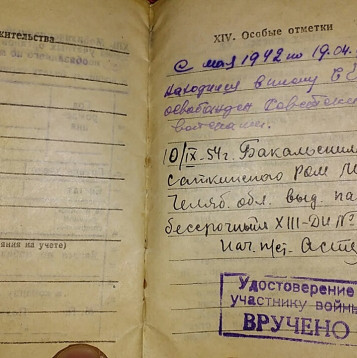 жительства
ания на учете)
XIV. Особые отметки
С мая 1942 по 19.04.
находился в плену
освобожден Советски
войсками.
10/IX.54г. Бакальским
Саткинского ром
Челяб. обл. выд. па
бессрочный XIII-ДИ №
Нач. п/ст.
Удостоверение
участнику войны
ВРУЧЕНО